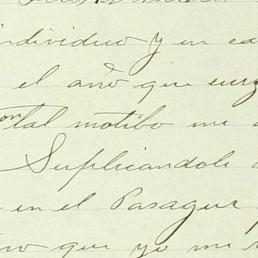 individuo y en ca
el año que surg
tal motibo me
Suplicandole
en el Pasague
que yo me